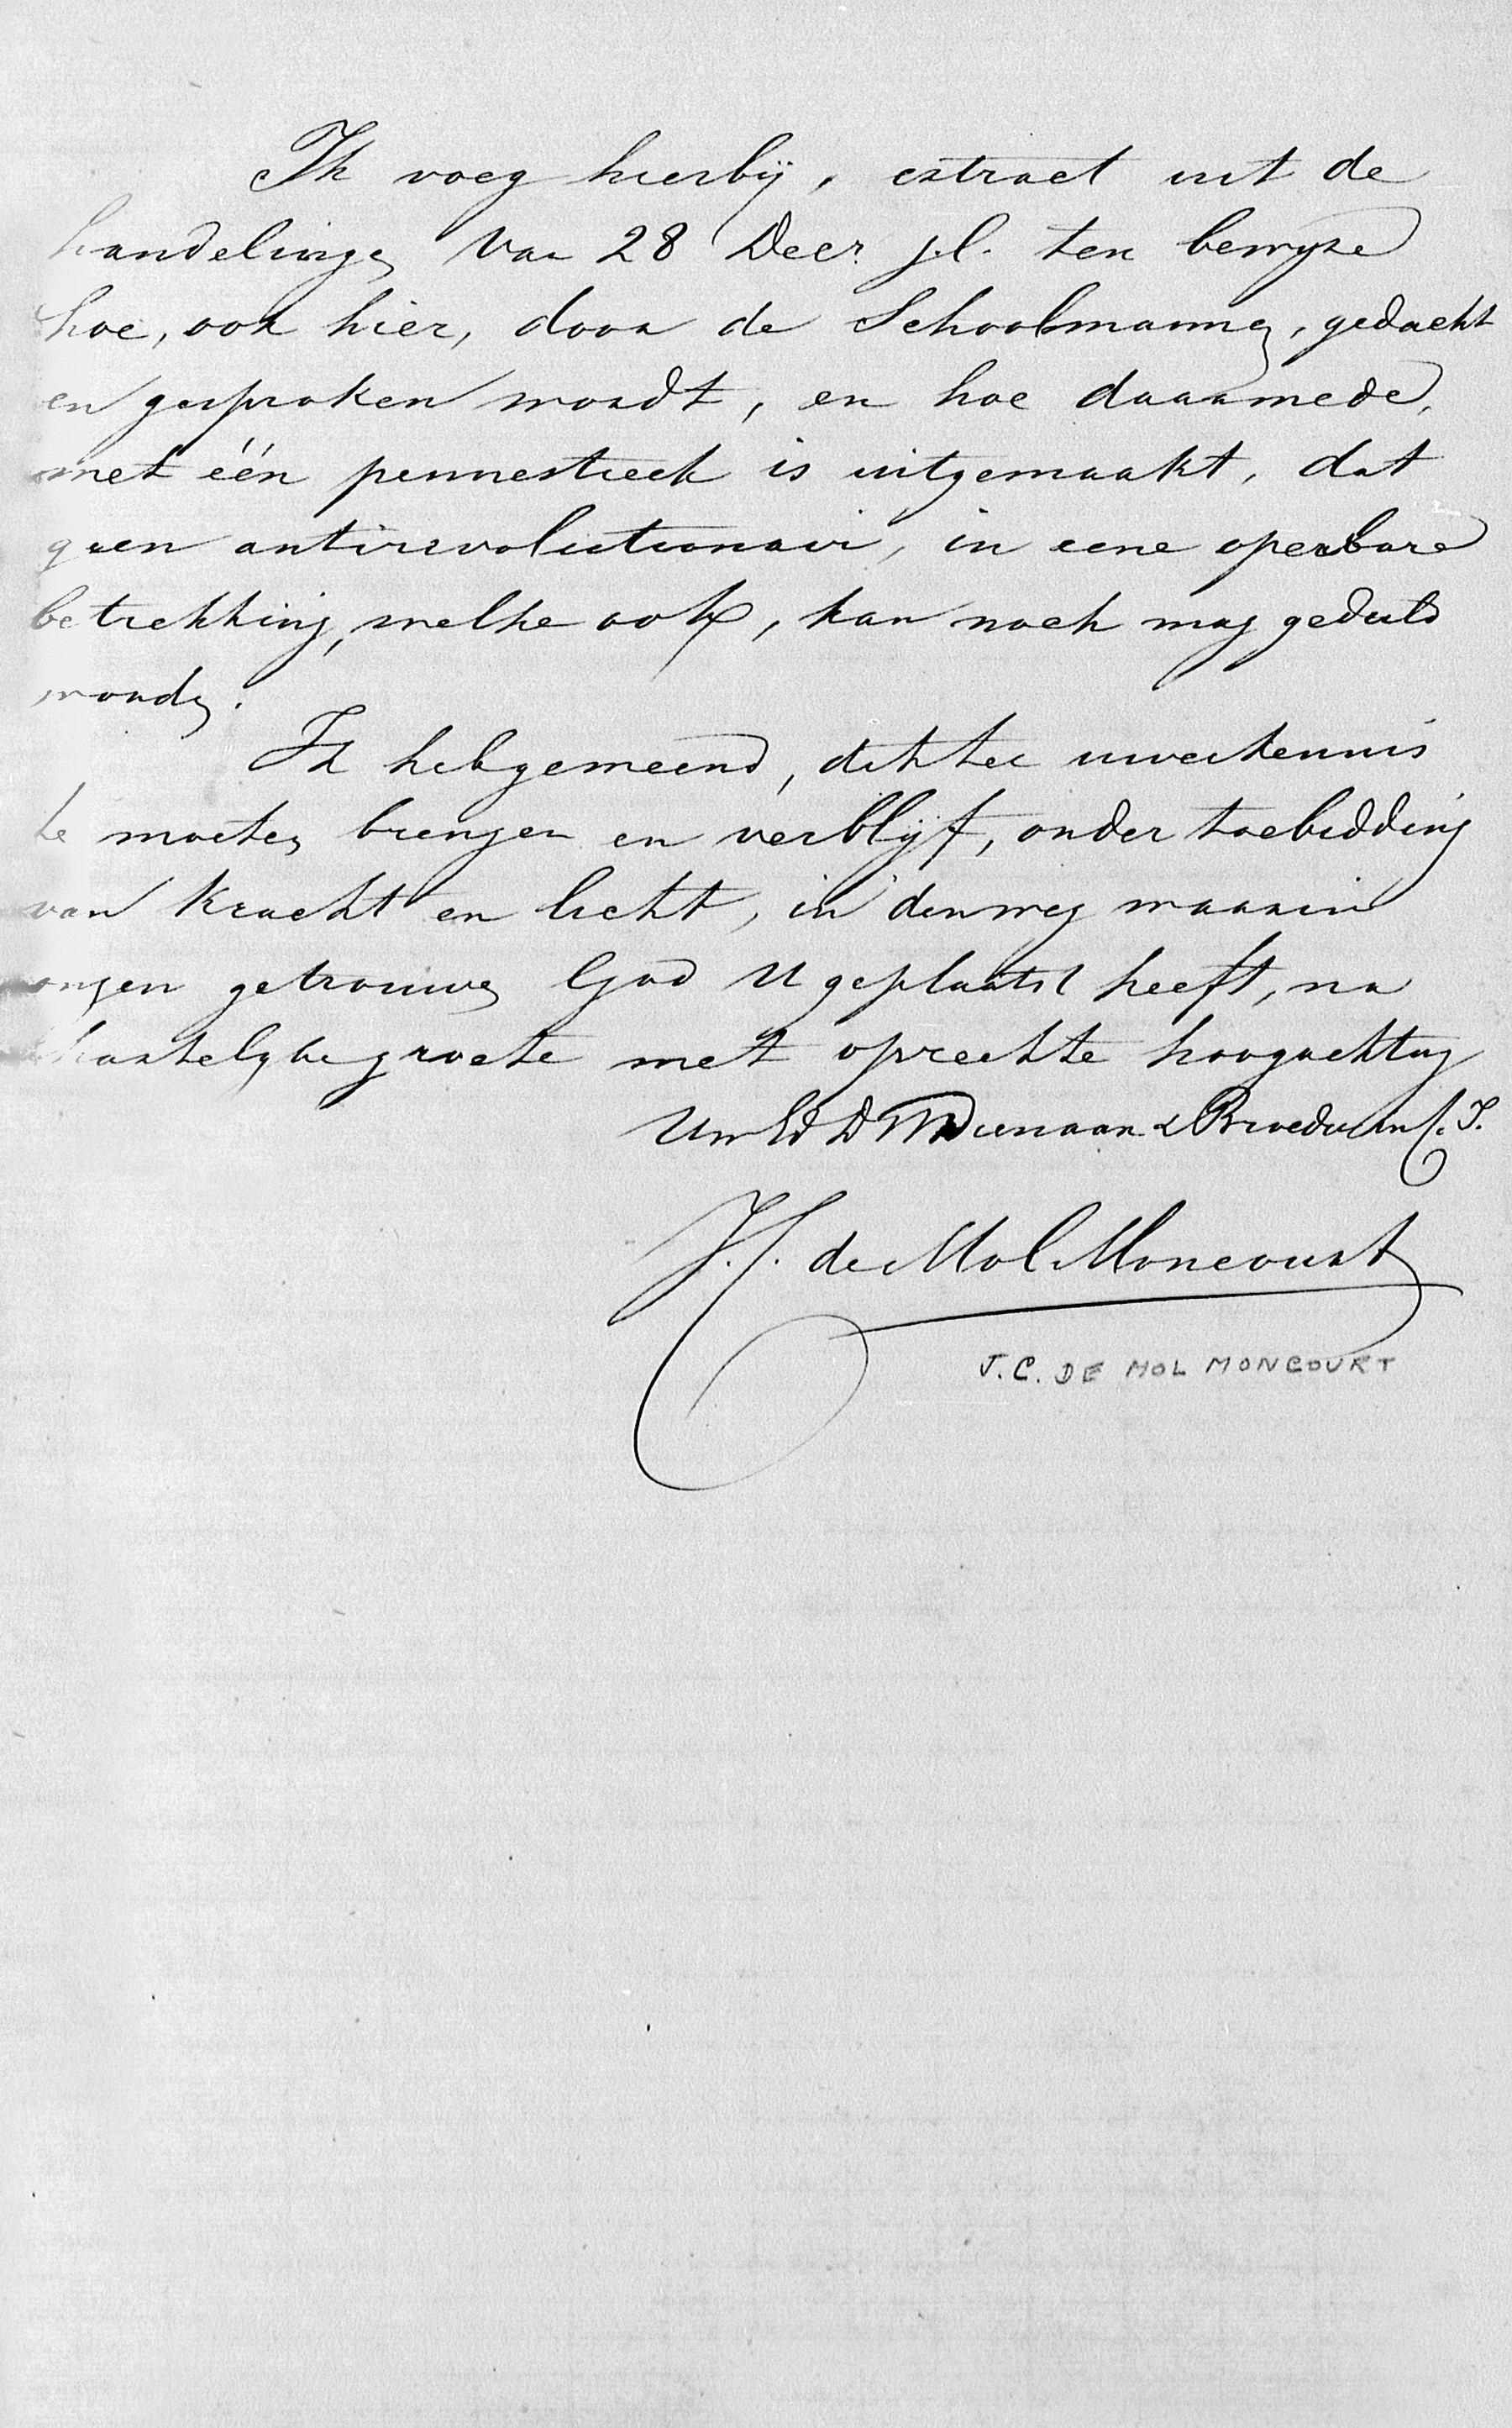 Ik voeg hierbij, extract uit de
handelingen van 28 Decr. j.l. ten bewyze
hoe, ook hier, door de Schoolmannen, gedacht
en gesproken wordt, en hoe daarmede,
met één pennestreek is uitgemaakt, dat
geen antirevolutionair, in eene openbare
betrekking, welke ook, kan noch mag geduld
worden.
Ik heb gemeend, dit ter uwer kennis
te moeten brengen en verblijf, onder toebidding
van kracht en licht, in den weg waarin
onzen getrouwen God U geplaatst heeft, na
hartelyke groete met oprechte hoogachting
Uw Ed D W Dienaar & Broeder in C. J.
J. C. de Mol Moncourt
J.C. DE MOL MONCOURT